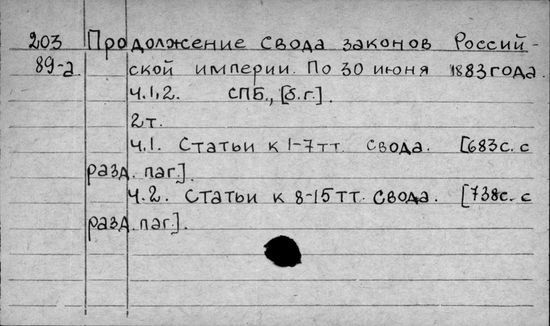 203 Продолжение Свода законов Россий-
89-а ской империи. По 30 июня 1883 года.
ч.1,2. СПБ., [б.г.].
2т.
ч.1. Статьи к 1-7 тт. Свода. [683с. с
разд. паг.].
ч.2. Статьи к 8-15 тт. Свода. [738с. с
разд. паг.].